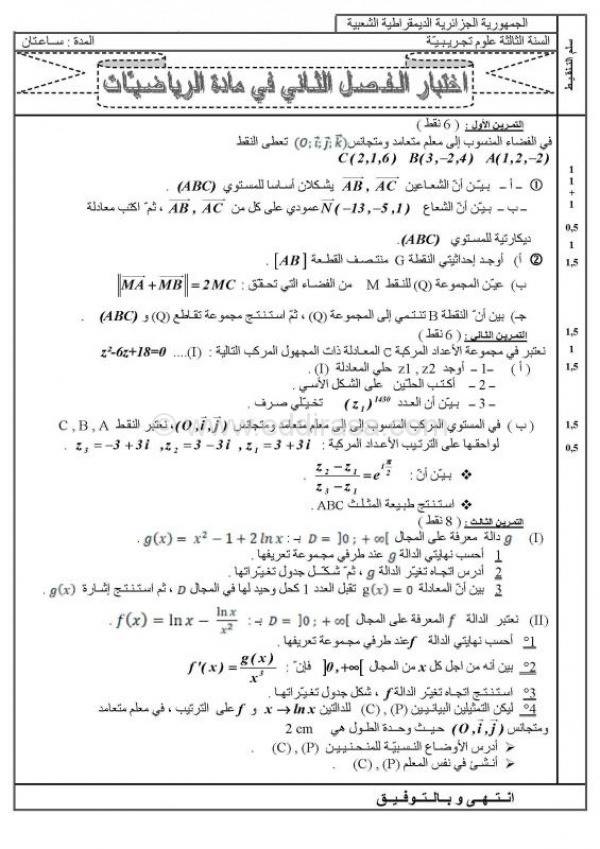 الجمهورية الجزائرية الديمقراطية الشعبية
السنة الثالثة علوم تجريبية المدة : ساعتان
سلم التنقيط
اختبار الفصل الثاني في مادة الرياضيات
التمرين الأول : ( 6 نقط )
في الفضاء المنسوب إلى معلم متعامد ومتجانس (O; i; j; k) تعطى النقط
A(1,2,-2) B(3,-2,4) C(2,1,6)
① - أ - بيّن أنّ الشعاعين AB , AC يشكلان أساسا للمستوي (ABC) .
- ب - بيّن أنّ الشعاع N(-13,-5,1) عمودي على كل من AB , AC ، ثمّ اكتب معادلة
ديكارتية للمستوي (ABC).
② أ) أوجد إحداثيتي النقطة G منتصف القطعة [AB] .
ب) عيّن المجموعة (Q) للنقط M من الفضاء التي تحقق : ||MA + MB|| = 2MC
جـ) بين أنّ النقطة B تنتمي إلى المجموعة (Q) ، ثمّ استنتج مجموعة تقاطع (Q) و (ABC) .
التمرين الثاني : ( 6 نقط )
نعتبر في مجموعة الأعداد المركبة C المعادلة ذات المجهول المركب التالية : (I).... z²-6z+18=0
( أ ) - 1 - أوجد z1 , z2 حلي المعادلة (I) .
- 2 - أكتب الحلين على الشكل الأسي .
- 3 - بيّن أن العدد (z₁)¹⁴³⁰ تخيّلي صرف .
( ب ) في المستوي المركب المنسوب إلى إلى معلم متعامد ومتجانس (O,i,j)، نعتبر النقط C , B , A
لواحقها على الترتيب الأعداد المركبة : z₃ = -3 + 3i , z₂ = 3 - 3i , z₁ = 3 + 3i .
❖ بيّن أنّ : (z₂ - z₁)/(z₃ - z₁) = e^(iπ/2)
❖ استنتج طبيعة المثلث ABC .
التمرين الثالث : ( 8 نقط )
(I) g دالة معرفة على المجال D = ]0 ; +∞[ بـ: g(x) = x² - 1 + 2 ln x .
1 أحسب نهايتي الدالة g عند طرفي مجموعة تعريفها .
2 أدرس اتجاه تغيّر الدالة g ، ثمّ شكّل جدول تغيّراتها .
3 بين أنّ المعادلة g(x) = 0 تقبل العدد 1 كحل وحيد لها في المجال D ، ثم استنتج إشارة g(x) .
(II) نعتبر الدالة f المعرفة على المجال D = ]0 ; +∞[ بـ: f(x) = ln x - ln x / x² .
1° أحسب نهايتي الدالة f عند طرفي مجموعة تعريفها .
2° بين أنه من اجل كل x من المجال ]0,+∞[ فإنّ : f'(x) = g(x)/x³
3° استنتج اتجاه تغيّر الدالة f ، شكل جدول تغيّراتها .
4° ليكن التمثيلين البيانيين (P) , (C) للدالتين x → ln x و f على الترتيب ، في معلم متعامد
ومتجانس (O,i,j) حيث وحدة الطول هي 2 cm
➤ أدرس الأوضاع النسبيّة للمنحنيين (P) , (C) .
➤ أنشئ في نفس المعلم (P) , (C) .
انتهى و بالتوفيق
1
1
+
1
0,5
1
1,5
1,5
1
1,5
1,5
0,5